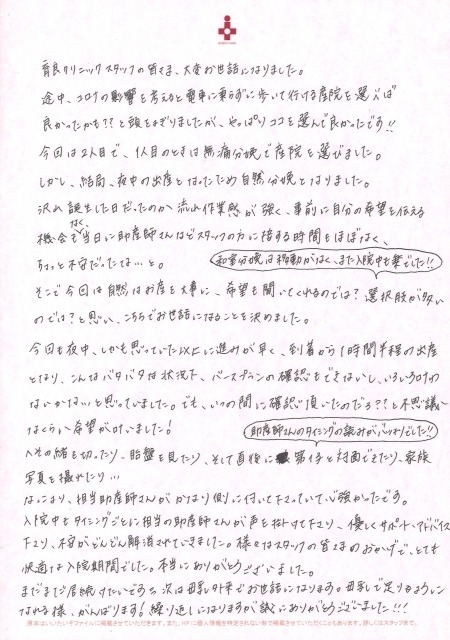 育良クリニックスタッフの皆さま、大変お世話になりました。
途中、コロナの影響を考えると電車に乗らずに歩いて行ける産院を選べば
良かったかも??と頭をよぎりましたが、やっぱりココを選んで良かったです!!
今回は2人目で、1人目のときは無痛分娩で産院を選びました。
しかし、結局、夜中の出産となったため自然分娩となりました。
沢山誕生した日だったのか流れ作業感が強く、事前に自分の希望を伝える
機会もなく当日に助産師さんなどスタッフの方に接する時間もほぼなく、
ちょっと不安だったな…と。
和室分娩は移動がなく、また入院中も楽でした!!
そこで今回は自然なお産を大事に、希望も聞いてくれるのでは?選択肢が多い
のでは?と思い、こちらでお世話になることを決めました。
今回も夜中、しかも思っていた以上に進みが早く、到着から1時間半程の出産
となり、こんなバタバタな状況下、バースプランの確認もできないし、いろいろ叶わ
ないかな…と思っていました。でも、いつの間に確認頂いたのだろ??と不思議に
なるくらい希望が叶いました!
助産師さんのタイミングの読みがバッチリでした!!
へその緒を切ったり、胎盤を見たり、そして直後に第1子と対面できたり、家族
写真を撮れたり…
なにより、担当助産師さんがかなり側に付いて下さっていて、心強かったです。
入院中もタイミングごとに担当の助産師さんが声を掛けて下さり、優しくサポート・アドバイス
下さり、不安がどんどん解消されていきました。様々なスタッフの皆さまのおかげで、とても
快適な入院期間でした。本当にありがとうございました。
まだまだ居続けたいですが、次は母乳外来でお世話になります。母乳で足りるように
なれる様、がんばります!繰り返しになりますが誠にありがとうございました!!!
原本はいいたいぞファイルに掲載させていただきます。また、HPに個人情報を特定されない形で掲載させていただくこともあります。詳しくはスタッフまで。